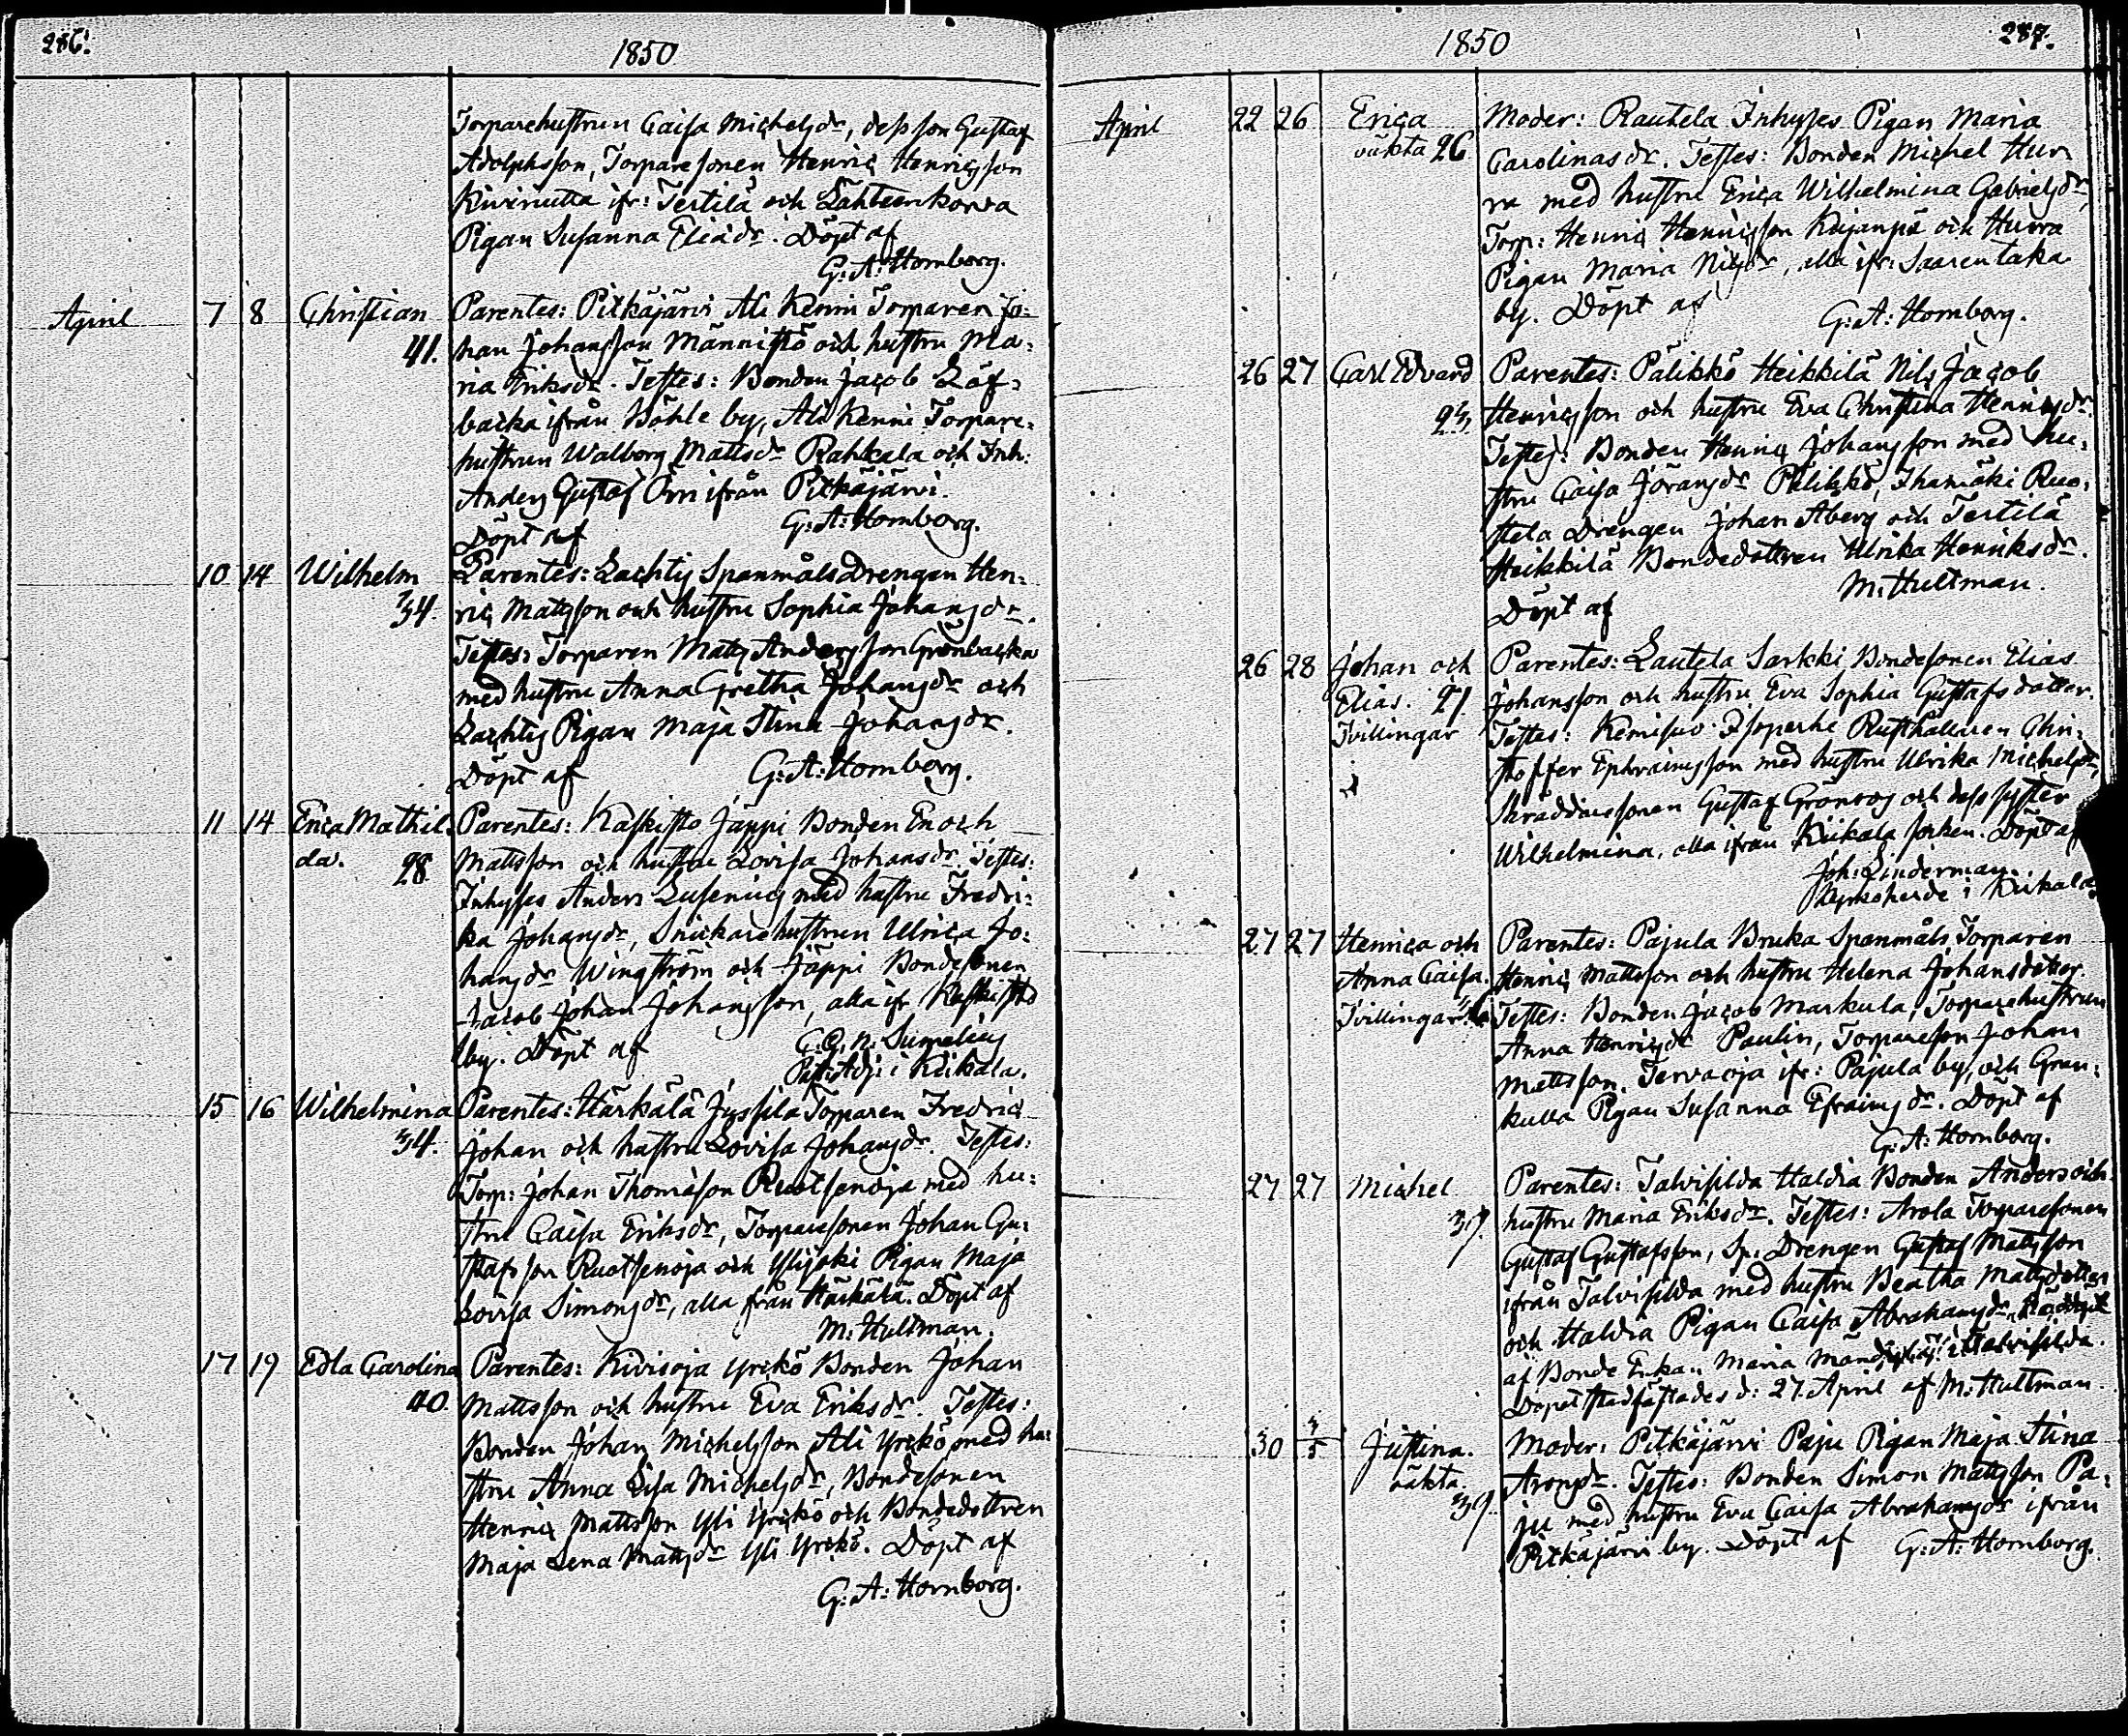 286.
1850
Torparehustrun Caisa Michelsdr, dess son Gustaf
Adolphsson, Torparesonen Henric Henricsson
Kivinutta ifr: Tertilä och Lähteenkorva
Pigan Susanna Eliädr. Döpt af
G: A: Hornborg.
April 7 8 Christian Parentes: Pitkäjärvi Ali Kenni Torparen Jo:
41. han Johansson Männistö och hustru Ma:
ria Eriksdr. Testes: Bonden Jacob Löf:
backa ifrån Böhle by, Ali Kenni Torpare:
hustrun Walborg Mattsdr Rahkala och Inh:
Anders Gustaf Örn ifrån Pitkäjärvi.
Döpt af G: A: Hornborg.
10 14 Wilhelm Parentes: Lachtis Spanmåls Drengen Hen:
34. ric Mattsson och hustru Sophia Johansdr.
Testes: Torparen Matts Andersson Grönbacka
med hustru Anna Gretha Johansdr och
Lachtis Pigan Maja Stina Johansdr.
Döpt af G: A: Hornborg.
11 14 Erica Mathil: Parentes: Kaskisto Jäppi Bonden Enoch
da. 28 Mattsson och hustru Lovisa Johansdr. Testes:
Inhyses Anders Lusenius med hustru Fredri:
ka Johansdr, Snickarehustrun Ulrica Jo:
hansdr Wingström och Jäppi Bondesonen
Jacob Johan Johansson, alla ifr Kaskisto
by. Döpt af
i Kiikala.
15 16 Wilhelmina Parentes: Härkälä Jussila Torparen Fredric
34. Johan och hustru Lovisa Johansdr. Testes:
Torp: Johan Thomasson Ruotsenoja med hu:
stru Caisa Eriksdr, Torparesonen Johan Gu:
stafsson Ruotsenoja och Ylijoki Pigan Maja
Lovisa Simonsdr, alla från Härkälä. Döpt af
M. Hultman.
17 19 Edla Carolina Parentes: Kivisoja Yrskö Bonden Johan
40. Mattsson och hustru Eva Eriksdr. Testes:
Bonden Johan Michelsson Ali Yrskö med hu:
stru Anna Lisa Michelsdr, Bondesonen
Henric Mattsson Yli Yrskö och Bondedottren
Maja Lena Mattsdr Yli Yrskö. Döpt af
G: A: Hornborg.
1850
287.
April 22 26 Erica Moder: Rautela Inhyses Pigan Maria
oäkta 26 Carolinasdr. Testes: Bonden Michel Hur:
ra med hustru Erica Wilhelmina Gabrielsdr,
Torp: Henric Henricsson Kujanpä och Hurra
Pigan Maria Nilsdr, alla ifr: Saarentaka
by. Döpt af G: A: Hornborg.
26 27 Carl Edvard Parentes: Pälikkö Heikkilä Nils Jacob
23. Henricsson och hustru Eva Christina Henricsdr.
Testes: Bonden Henric Johansson med hu:
stru Caisa Göransdr Pälikkö, Ihamäki Ruo:
stela Drengen Johan Åberg och Tertilä
Heikkilä Bondedottren Ulrika Henriksdr.
Döpt af M: Hultman.
26 28 Johan och Parentes: Lautela Sarkki Bondesonen Elias
Elias. 21. Johansson och hustru Eva Sophia Gustafs dotter.
Tvillingar Testes: Kemisuo Isoperhe Rusthållaren Chri:
stoffer Ephraimsson med hustru Ulrika Michelsdr,
Skräddaresonen Gustaf Grönroos och dess syster
Wilhelmina, alla ifrån Kiikala socken. Döpt af
Joh: Linderman.
Kyrkoherde i Kiikala
27 27 Henrica och Parentes: Pajula Bruka Spanmåls Torparen
Anna Caisa. Henric Mattsson och hustru Helena Johansdotter.
Tvillingar. Testes: Bonden Jacob Markula, Torparehustrun
Anna Henricsdr Paulin, Torpareson Johan
Mattsson Tervaoja ifr: Pajula by, och Gran:
kulla Pigan Susanna Efraimsdr. Döpt af
G: A: Hornborg.
27 27 Michel Parentes: Talvisilda Haldia Bonden Anders och
39. hustru Maria Eriksdr. Testes: Arola Torparesonen
Gustaf Gustafsson, Sp: Drengen Gustaf Mattsson
ifrån Talvisilda med hustru Beatha Mattsdotter
och Haldia Pigan Caisa Abrahamsdr,
af Bonde Enkan Maria i Talvisilda.
Dopet stadfästades d: 27. April af M: Hultman.
30 3/5 Justina. Moder: Pitkäjärvi Paju Pigan Maja Stina
oäkta. Aronsdr. Testes: Bonden Simon Mattsson Pa:
39. ju med hustru Eva Caisa Abrahamsdr ifrån
Pitkäjärvi by. Döpt af G: A: Hornborg.